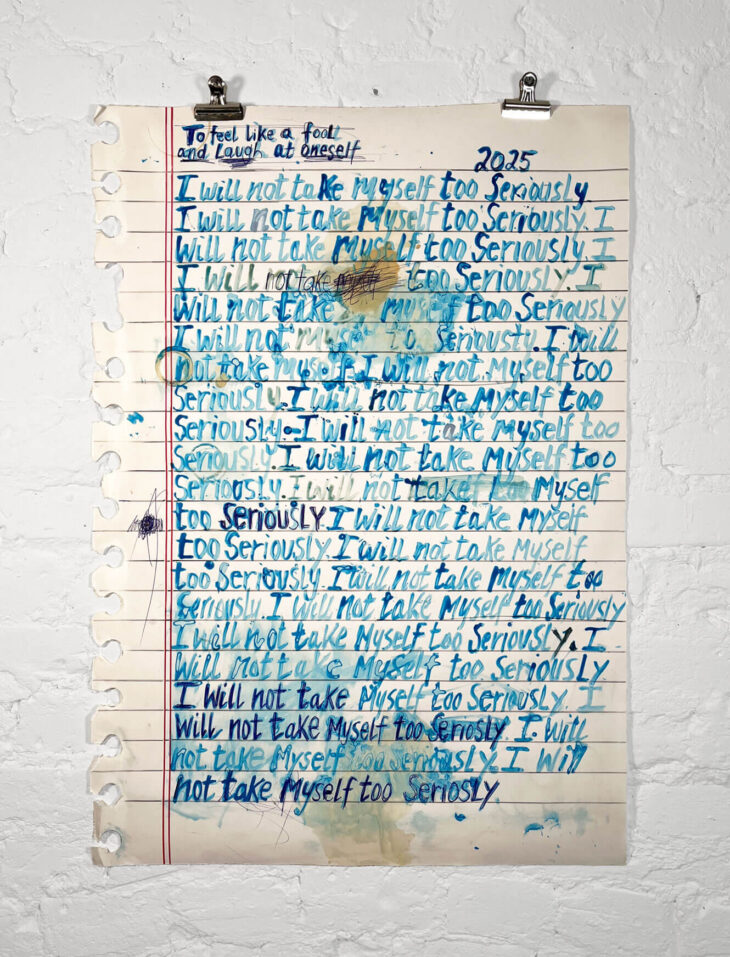 To feel like a fool
and Laugh at oneself
2025
I will not take myself too Seriously
I will not take Myself too Seriously. I
Will not take Myself too Seriously. I
I will not take too Seriously. I
Will not take myself too Seriously
I will not to Seriously. I Will
not take myself. I will not Myself too
Seriously. I will not take Myself too
Seriously. I will not take Myself too
Seriously. I will not take Myself too
Seriously. I will not take Myself
too Seriously. I will not take Myself
too Seriously. I will not take Myself
too Seriously. I will not take Myself too
Seriously. I will not take Myself too Seriously
I will not take Myself too Seriously. I
Will not take Myself too Seriously
I Will not take Myself too Seriously. I
Will not take Myself too Seriosly. I Will
not take Myself too Seriously. I Will
not take Myself too Seriosly.